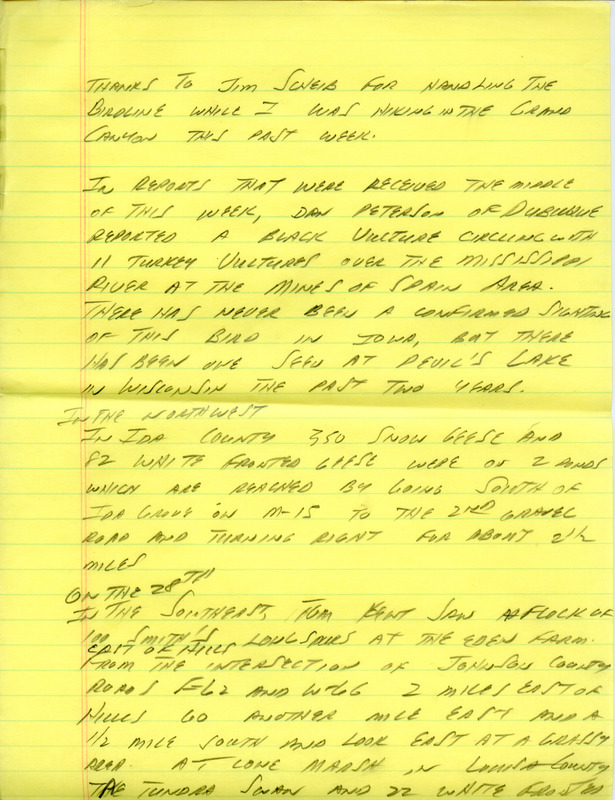 THANKS TO JIM SCHEIB FOR HANDLING THE
BIRDLINE WHILE I WAS HIKING IN THE GRAND
CANYON THIS PAST WEEK.
IN REPORTS THAT WERE RECEIVED THE MIDDLE
OF THIS WEEK, DAN PETERSON OF DUBUQUE
REPORTED A BLACK VULTURE CIRCLING WITH
11 TURKEY VULTURES OVER THE MISSISSIPPI
RIVER AT THE MINES OF SPAIN AREA.
THERE HAS NEVER BEEN A CONFIRMED SIGHTING
OF THIS BIRD IN IOWA, BUT THERE
HAS BEEN ONE SEEN AT DEVIL'S LAKE
IN WISCONSIN THE PAST TWO YEARS.
IN THE NORTHWEST
IN IDA COUNTY 350 SNOW GEESE AND
82 WHITE FRONTED GEESE WERE ON 2 PONDS
WHICH ARE REACHED BY GOING SOUTH OF
IDA GROVE ON M-15 TO THE 2ND GRAVEL
ROAD AND TURNING RIGHT FOR ABOUT 2 1/2
MILES
ON THE 28TH
IN THE SOUTHEAST, TOM KENT SAW A FLOCK OF
100 SMITH'S LONGSPURS AT THE EDEN FARM.
EAST OF HILLS
FROM THE INTERSECTION OF JOHNSON COUNTY
ROADS F-62 AND W66 2 MILES EAST OF
HILLS GO ANOTHER MILE EAST AND A
1/2 MILE SOUTH AND LOOK EAST AT A GRASSY
AREA. AT CONE MARSH IN LOUISA COUNTY
THE TUNDRA SWAN AND 22 WHITE FRONTED